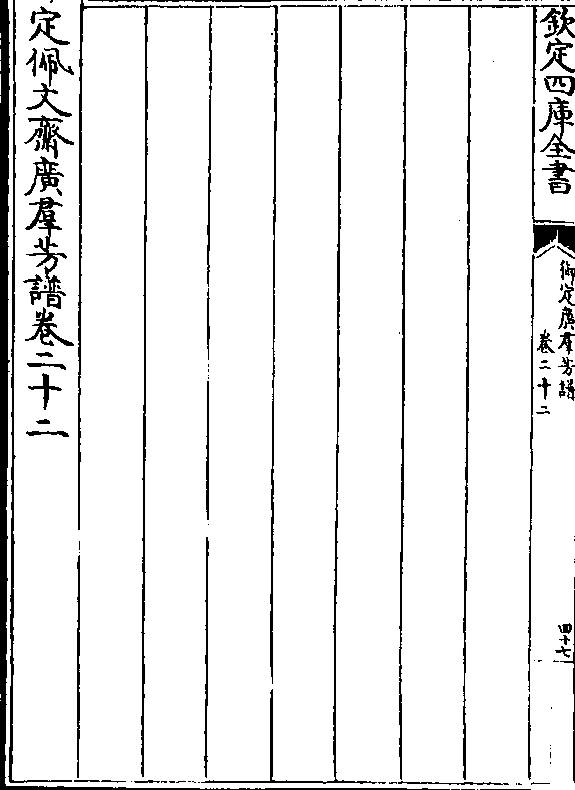 欽定四庫全書
御定廣羣芳譜
卷二十二
四十七
定佩文齋廣羣芳譜卷二十二